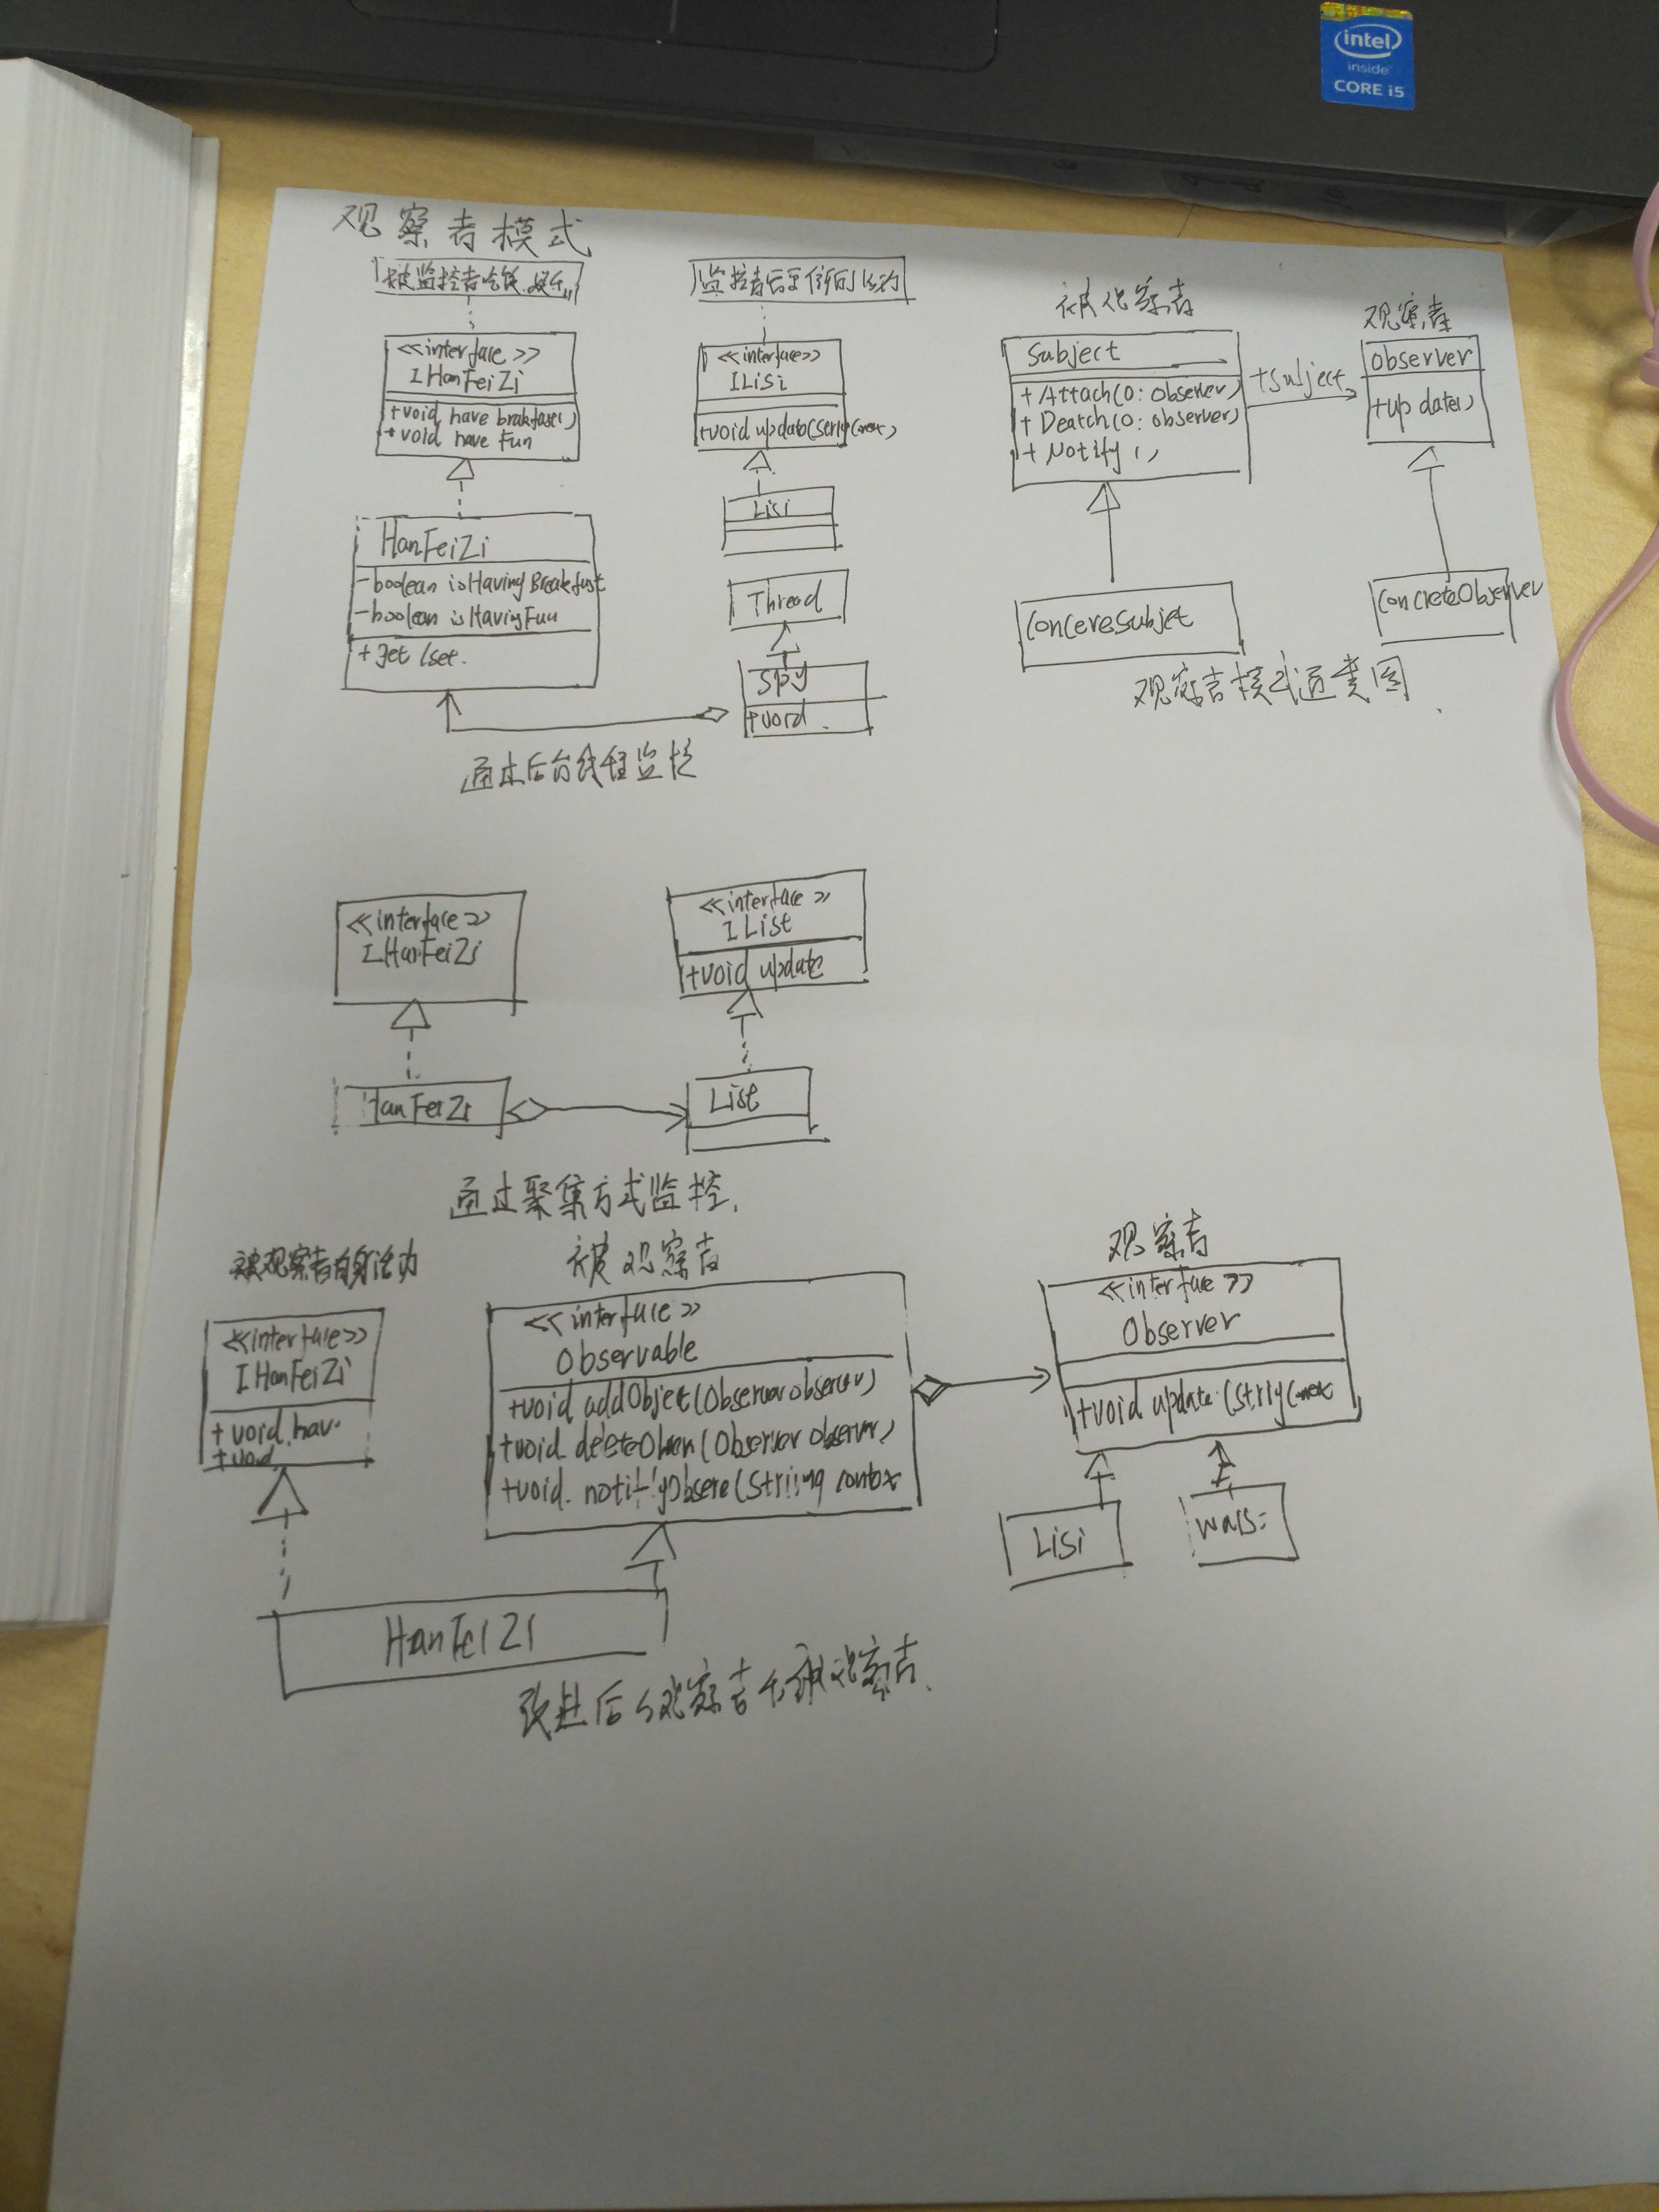 intel
inside
CORE i5
观察者模式
被监控者吃饭.娱乐
<<interface>>
IHanFeiZi
+void have breakfast()
+void have Fun
HanFeiZi
-boolean isHavingBreakfast
-boolean isHavingFun
+get/set.
监控者
<<interface>>
ILiSi
+void update(
Lisi
Thread
Spy
+void
通过后台线程监控
被观察者
Subject
+Attach(O: Observer)
+Deatch(O: observer)
+Notify()
+Subject
观察者
observer
+update()
ConcreteObserver
观察者模式通类图
<<interface>>
IHanFeiZi
HanFeiZi
<<interface>>
IList
+void update
List
通过聚集方式监控.
被观察者自身活动
<<interface>>
IHanFeiZi
+void hav
+void
被观察者
<<interface>>
Observable
+void addObject(Observer observer)
+void (Observer observer)
+void. (String
观察者
<<interface>>
Observer
+void update(
Lisi
HanFeiZi
改进后 观察者 被观察者.